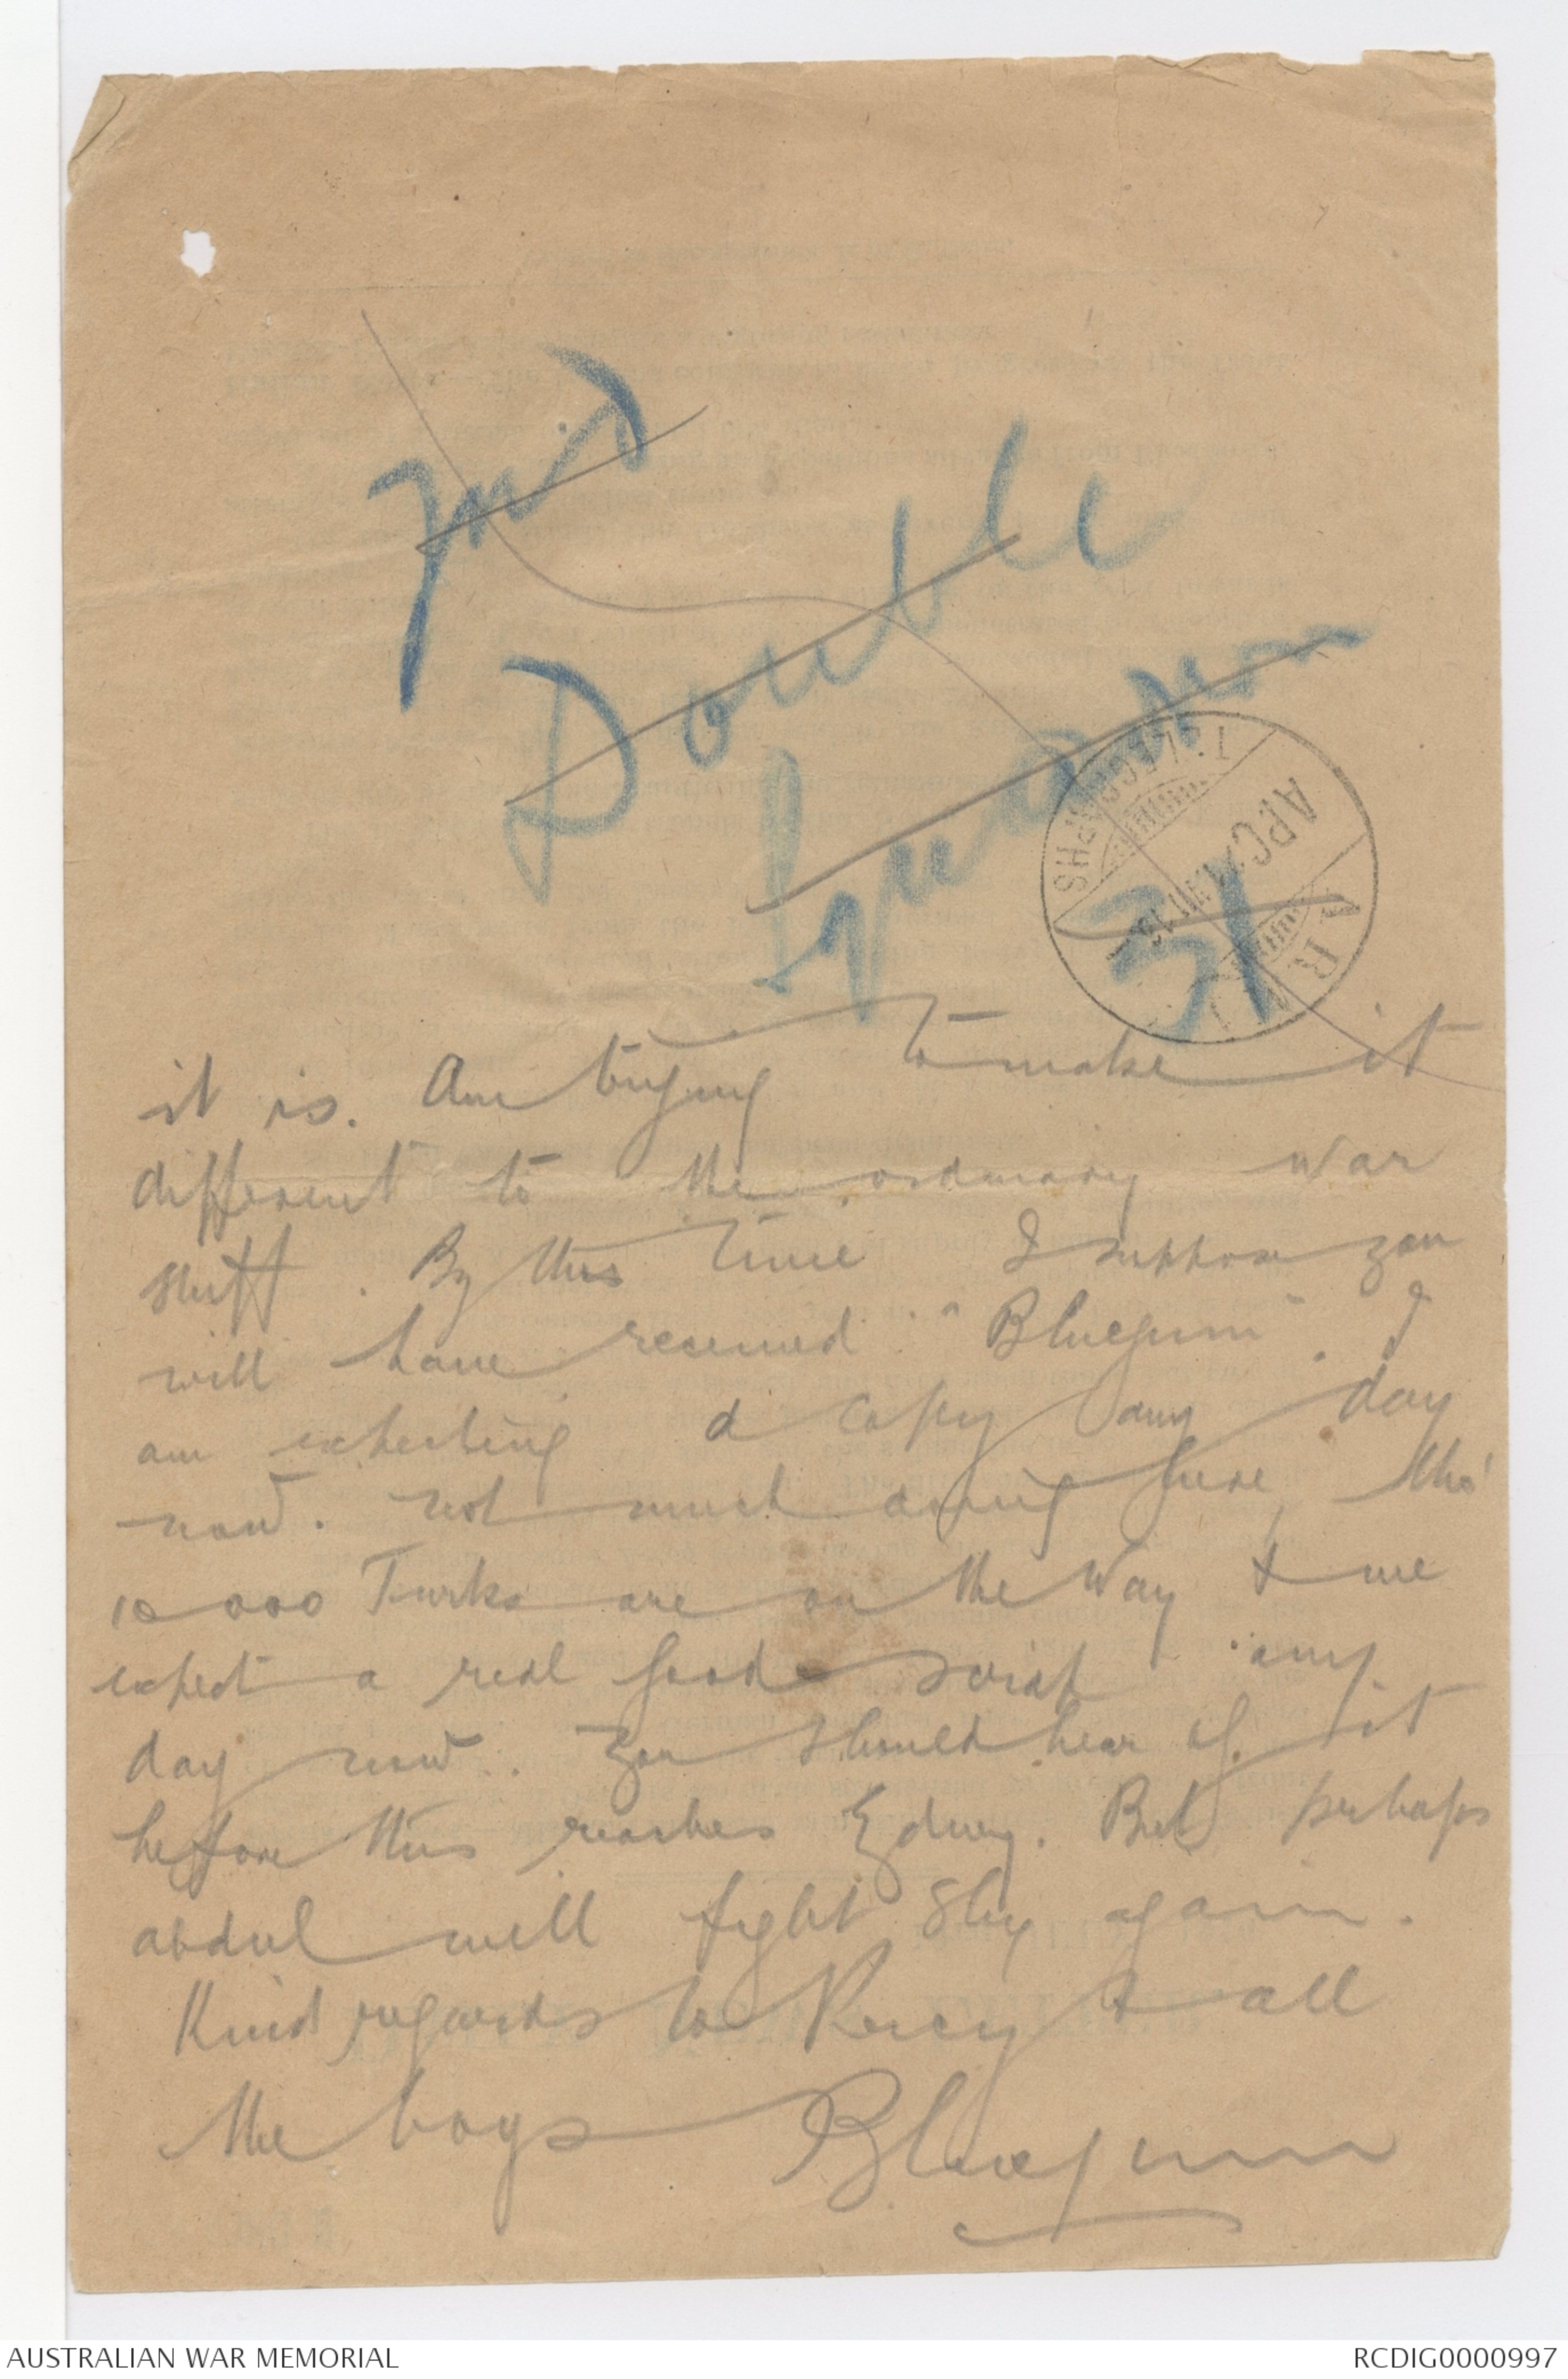 2nd
Double
Squadron
31
ARMY TELEGRAPHS
it is. Am trying to make it
different to the ordinary war
stuff. By this time I suppose you
will have received "Bluegum". I
am expecting a copy any day
now. Not much doing here, tho'
10 000 Turks are on the way & we
expect a real good scrap any
day now. You should hear of it
before this reaches Sydney. But perhaps
abdul will fight shy again.
Kind regards to Percy & all
the boys Bluegum
AUSTRALIAN WAR MEMORIAL
RCDIG0000997